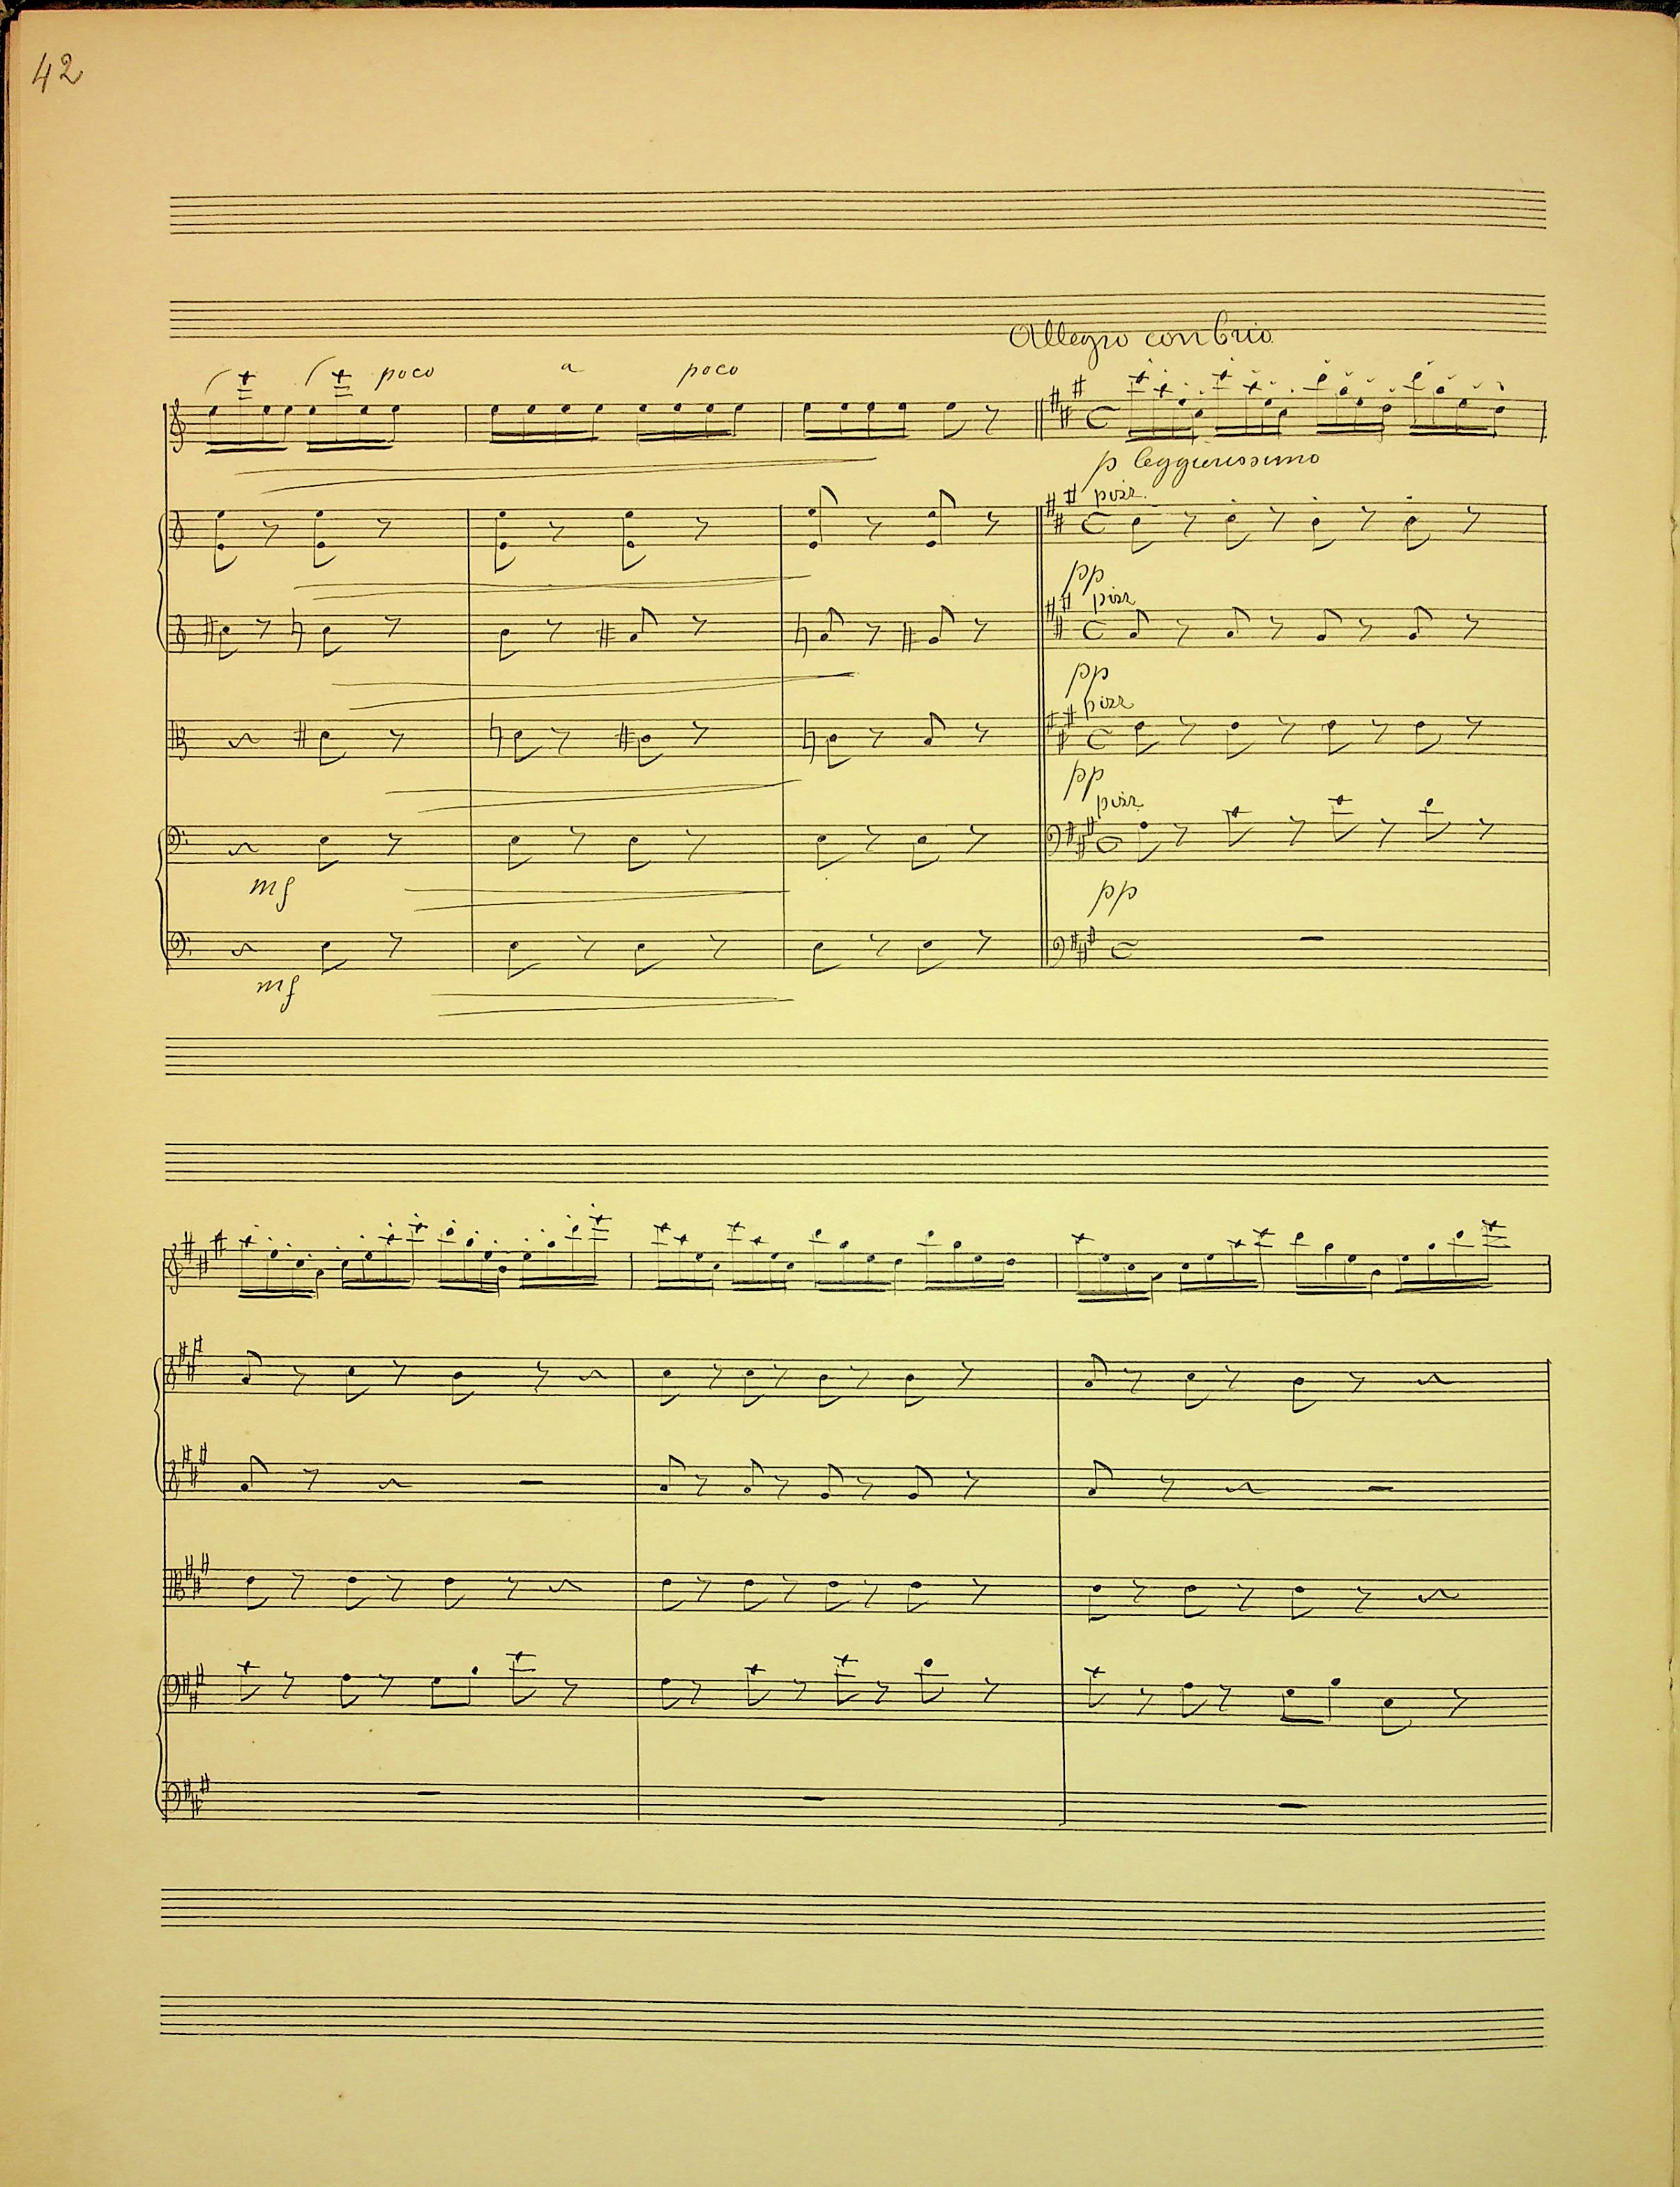 42
Allegro con brio
poco a poco
p leggerissimo
pizz.
pp
pizz
pp
pizz
pp
pizz.
mf
pp
mf